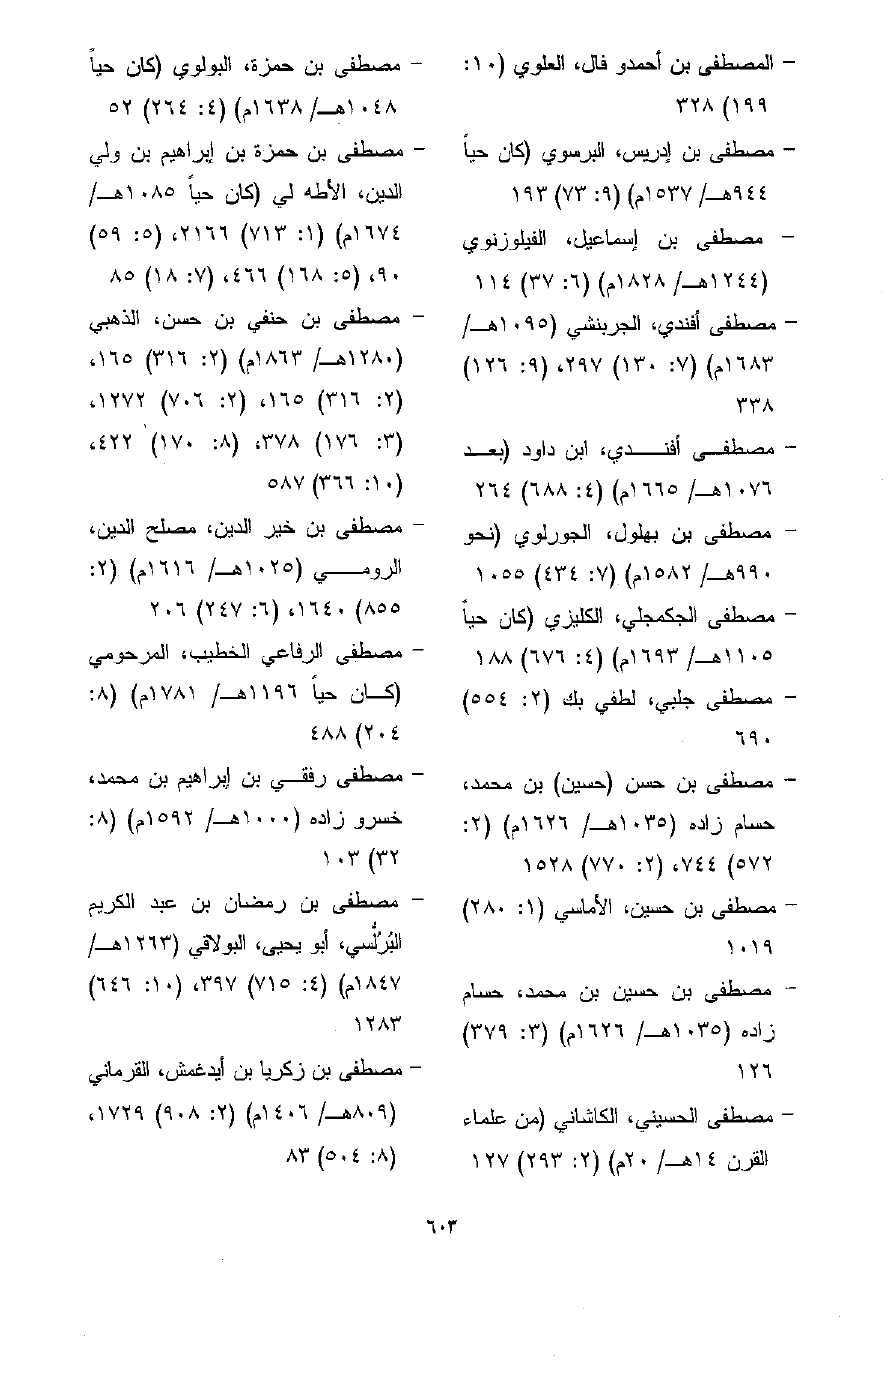 - المصطفى بن أحمدو فال، العلوي (١٠:
١٩٩) ٣٢٨
- مصطفى بن إدريس، البرسوي (كان حياً
٩٤٤هـ/ ١٥٣٧م) (٩: ٧٣) ١٩٣
- مصطفى بن إسماعيل، الفيلوزنوي
(١٢٤٤هـ/ ١٨٢٨م) (٦: ٣٧) ١١٤
- مصطفى أفندي، الجربنشي (١٠٩٥هـ/
١٦٨٣م) (٧: ١٣٠) ٢٩٧، (٩: ١٢٦)
٣٣٨
- مصطفى أفندي، ابن داود (بعد
١٠٧٦هـ/ ١٦٦٥م) (٤: ٦٨٨) ٢٦٤
- مصطفى بن بهلول، الجورلوي (نحو
٩٩٠هـ/ ١٥٨٢م) (٧: ٤٣٤) ١٠٥٥
- مصطفى الجكمجلي، الكليزي (كان حياً
١١٠٥هـ/ ١٦٩٣م) (٤: ٦٧٦) ١٨٨
- مصطفى جلبي، لطفي بك (٢: ٥٥٤)
٦٩٠
- مصطفى بن حسن (حسين) بن محمد،
حسام زاده (١٠٣٥هـ/ ١٦٢٦م) (٢:
٥٧٢) ٧٤٤، (٢: ٧٧٠) ١٥٢٨
- مصطفى بن حسين، الأماسي (١: ٢٨٠)
١٠١٩
- مصطفى بن حسين بن محمد، حسام
زاده (١٠٣٥هـ/ ١٦٢٦م) (٣: ٣٧٩)
١٢٦
- مصطفى الحسيني، الكاشاني (من علماء
القرن ١٤هـ/ ٢٠م) (٢: ٢٩٣) ١٢٧
- مصطفى بن حمزة، البولوي (كان حياً
١٠٤٨هـ/ ١٦٣٨م) (٤: ٢٦٤) ٥٢
- مصطفى بن حمزة بن إبراهيم بن ولي
الدين، الأطه لي (كان حياً ١٠٨٥هـ/
١٦٧٤م) (١: ٧١٣) ٢١٦٦، (٥: ٥٩)
٩٠، (٥: ١٦٨) ٤٦٦، (٧: ١٨) ٨٥
- مصطفى بن حنفي بن حسن، الذهبي
(١٢٨٠هـ/ ١٨٦٣م) (٢: ٣١٦) ١٦٥،
(٢: ٣١٦) ١٦٥، (٢: ٧٠٦) ١٢٧٢،
(٣: ١٧٦) ٣٧٨، (٨: ١٧٠) ٤٢٢،
(١٠: ٣٦٦) ٥٨٧
- مصطفى بن خير الدين، مصلح الدين،
الرومي (١٠٢٥هـ/ ١٦١٦م) (٢:
٨٥٥) ١٦٤٠، (٦: ٢٤٧) ٢٠٦
- مصطفى الرفاعي الخطيب، المرحومي
(كان حياً ١١٩٦هـ/ ١٧٨١م) (٨:
٢٠٤) ٤٨٨
- مصطفى رفقي بن إبراهيم بن محمد،
خسرو زاده (١٠٠٠هـ/ ١٥٩٢م) (٨:
٣٢) ١٠٣
- مصطفى بن رمضان بن عبد الكريم
البُرُلُّسي، أبو يحيى، البولاقي (١٢٦٣هـ/
١٨٤٧م) (٤: ٧١٥) ٣٩٧، (١٠: ٦٤٦)
١٢٨٣
- مصطفى بن زكريا بن أيدغمش، القرماني
(٨٠٩هـ/ ١٤٠٦م) (٢: ٩٠٨) ١٧٢٩،
(٨: ٥٠٤) ٨٣
٦٠٣